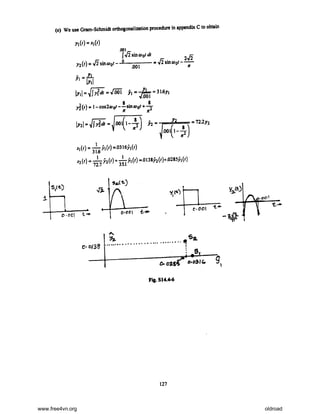 (c) We use Gram-Schmidt orthogonalization procedure in appendix C to obtain
y₁(t) = s₁(t)
y₂(t) = √2 sin ω₀t − (∫₀^.001 √2 sin ω₀t dt)/.001 = √2 sin ω₀t − 2√2/π
ŷ₁ = y₁/|y₁|
|y₁| = √∫y₁²dt = √.001 ŷ₁ = y₁/√.001 = 31.6y₁
y₂²(t) = 1 − cos 2ω₀t − (8/π) sin ω₀t + 8/π²
|y₂| = √∫y₂²dt = √(.001(1 − 8/π²)) ŷ₂ = y₂/√(.001(1 − 8/π²)) = 72.2y₂
S₁(t)
1
0.001 t→
S₂(t)
√2
0.001 t→
y₁(t)
0.001 t→
y₂(t)
0.001
t→
ŷ₂
S₂
0.0138
S₁
0.0285 0.0316 ŷ₁
Fig. S14.4-6
127
www.free4vn.org
oldroad